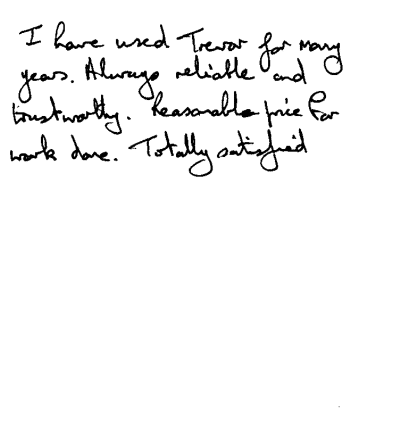 I have used Trevor for many
years. Always reliable and
trustworthy. Reasonable price for
work done. Totally satisfied